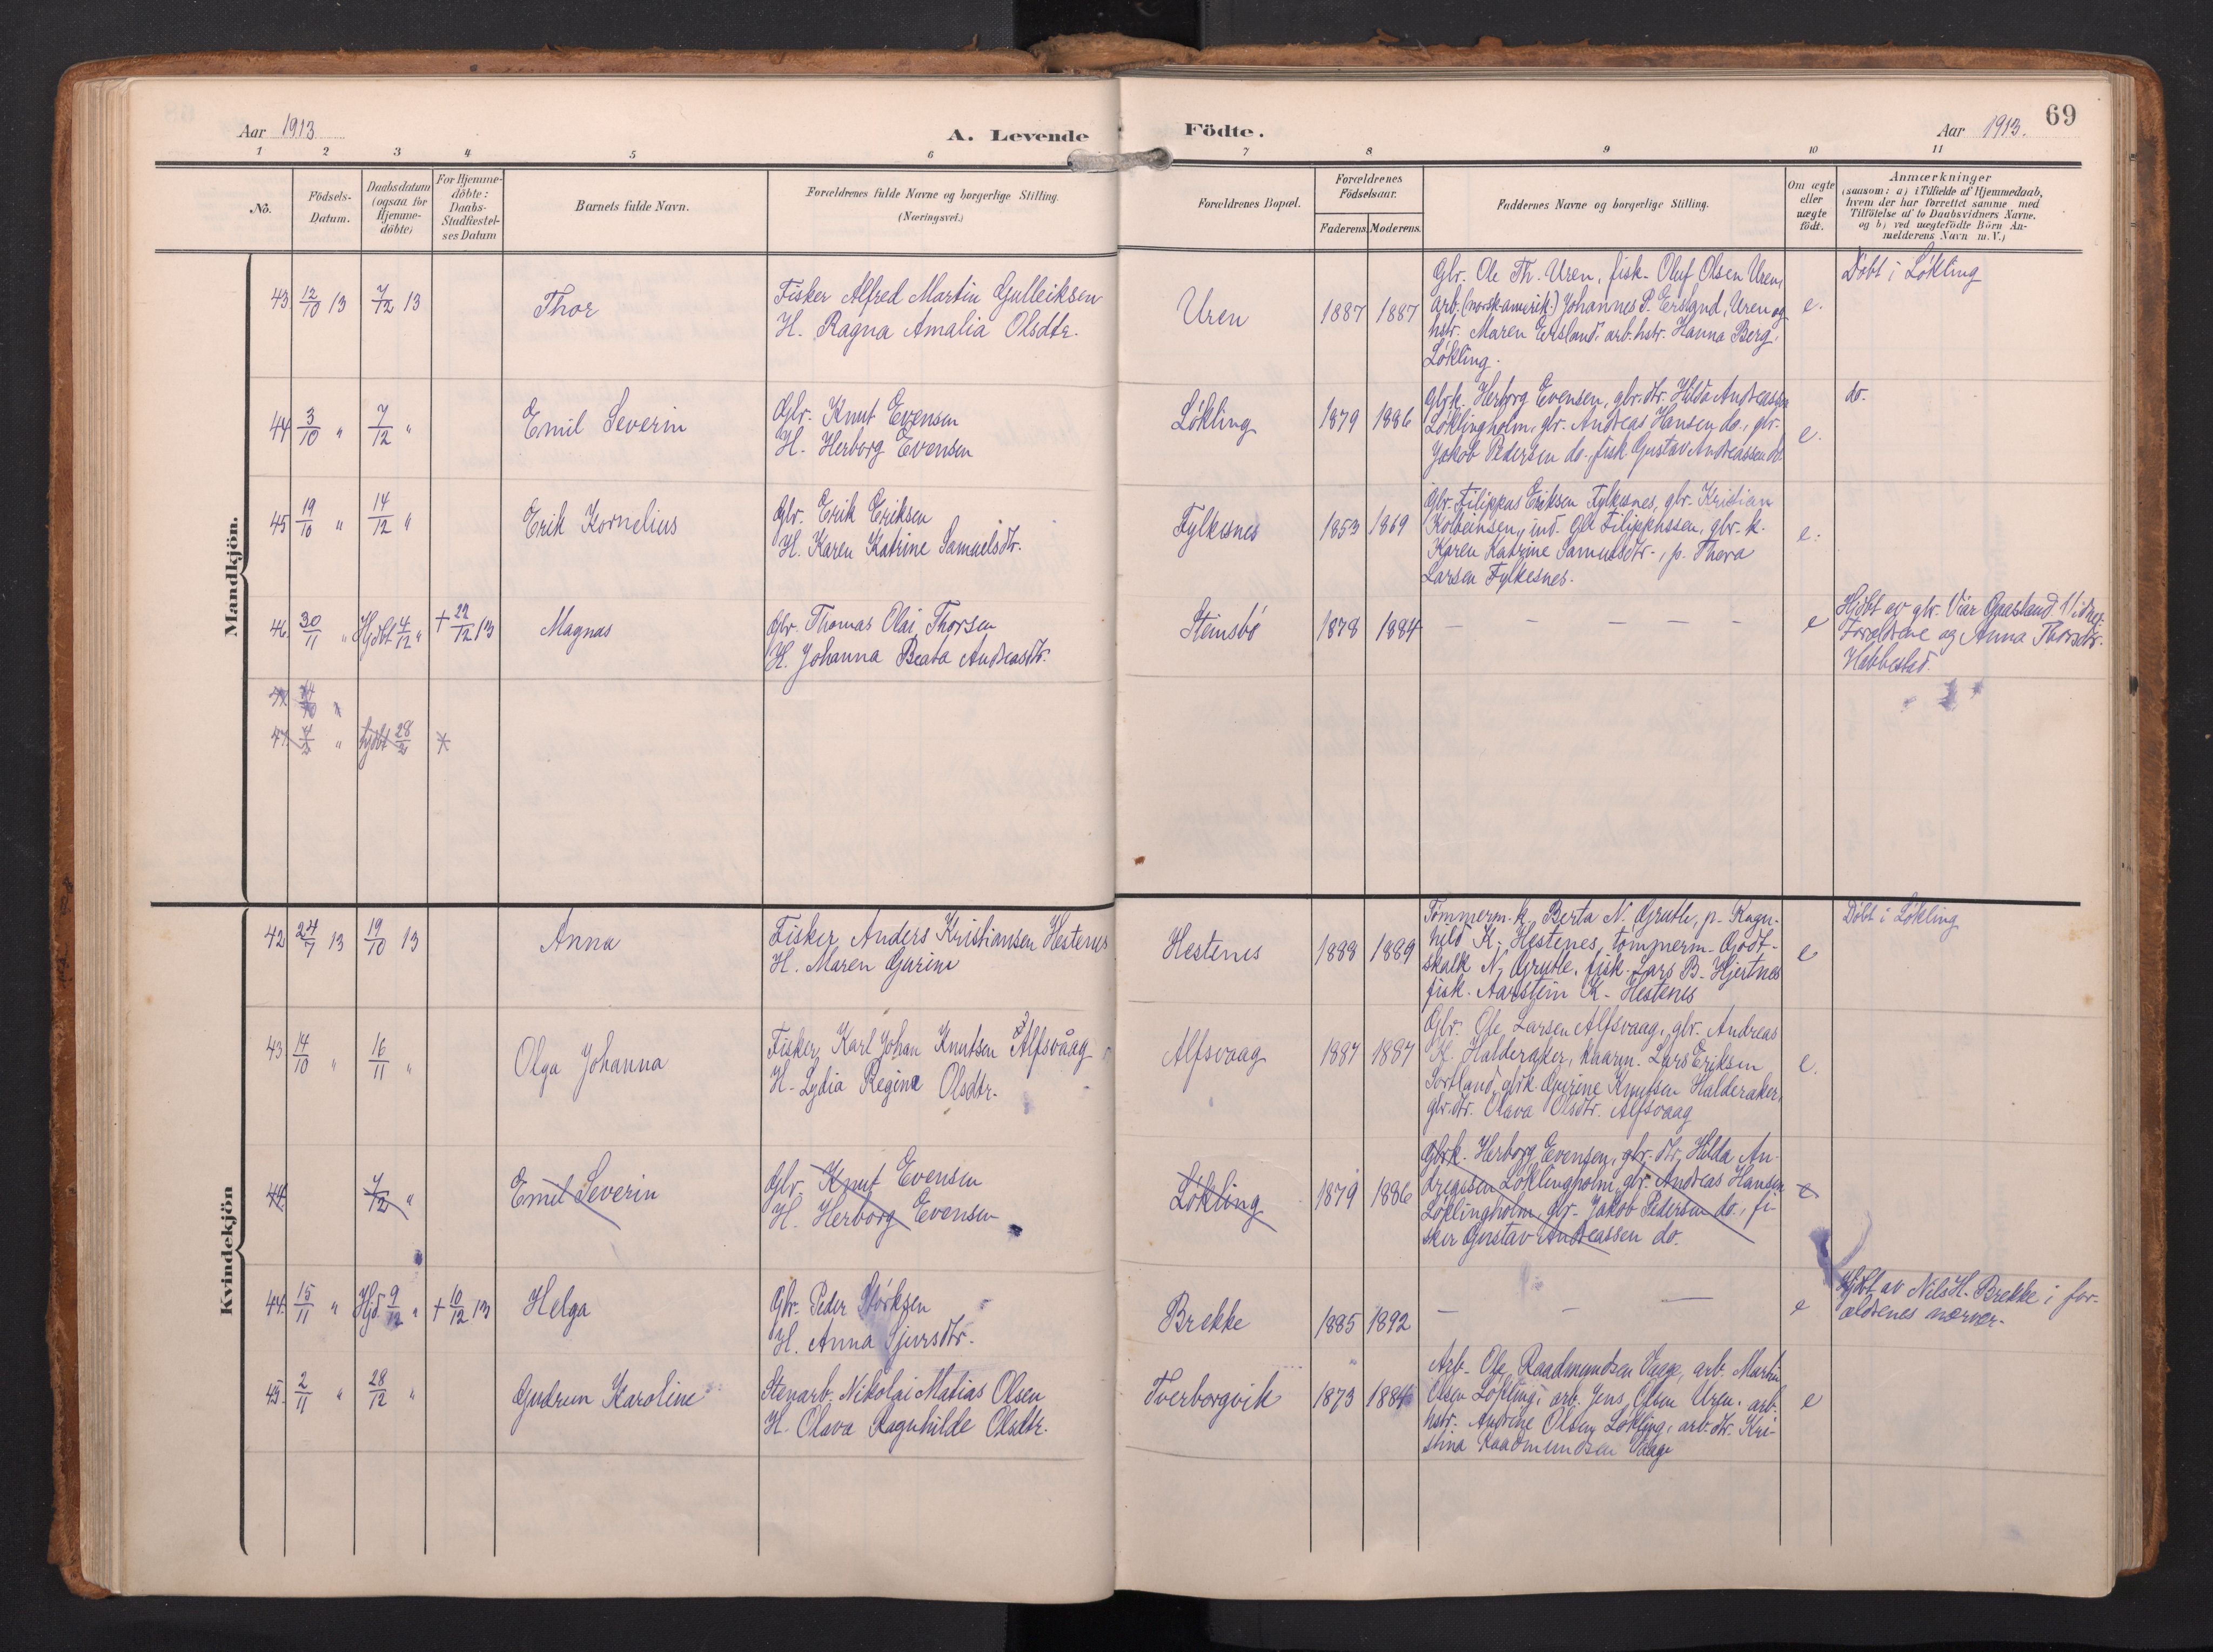 69
Aar 1913
A. Levende
Födte.
Aar 1913.
1 2 3 4 5 6 7 8 9 10 11
No.
Födsels-
Datum.
Daabsdatum
(ogsaa for
Hjemme-
döbte)
For Hjemme-
döbte:
Daabs-
Stadfæstel-
ses Datum
Barnets fulde Navn.
Forældrenes fulde Navne og borgerlige Stilling.
(Næringsvei.)
Forældrenes Bopæl.
Forældrenes
Födselsaar.
Faderens. Moderens.
Faddernes Navne og borgerlige Stilling.
Om ægte
eller
uægte
födt.
Anmærkninger
(saasom: a) i Tilfælde af Hjemmedaab,
hvem der har forrettet samme med
Tilföielse af to Daabsvidners Navne,
og b) ved uægtefödte Börn An-
melderens Navn m. V.)
Mandkjön.
43 12/10 13 7/12 13
Thor
Fisker Alfred Martin Gulleiksen
H. Ragna Amalia Olsdtr.
Uren
1887 1887
Gbr. Ole Th. Uren, fisk. Oluf Olsen Uren,
arb. (norsk-amerik.) Johannes P. Ersland, Uren og
hstr. Maren Ersland, arb. hstr. Hanna Berg,
Løkling.
e.
Döbt i Løkling
44 3/10 " 7/12 "
Emil Severin
Gbr. Knut Evensen
H. Herborg Evensen
Løkling
1879 1886
Gbrk. Herborg Evensen, gbr. dtr. Hilda Andreassen
Løklingholm, gbr. Andreas Hansen do., gbr.
Jakob Pedersen do., fisk. Gustav Andreassen do.
e.
do.
45 19/10 " 14/12 "
Erik Kornelius
Gbr. Erik Eriksen
H. Karen Katrine Samuelsdtr.
Fylkesnes
1853 1869
Gbr. Filippus Eriksen Fylkesnes, gbr. Kristian
Kolbeinsen, ind. Ole Filippussen, gbr. k.
Karen Katrine Samuelsdtr., p. Thora
Larsen Fylkesnes.
e.
46. 30/11 " Hjdbt 4/12 " + 22/12 13
Magnus
Gbr. Thomas Olai Thorsen
H. Johanna Beata Andreasdtr.
Steinsbø
1878 1884
e
Hjdbt av gbr. Viar Gaasland Vidner:
Forældrene og Anna Thorsdtr.
Habbestad.
47 "
47 " hjdbt 28/2
Kvindekjön
42 24/7 13 19/10 13
Anna
Fisker Anders Kristiansen Hestenes
H. Maren Gurine
Hestenes
1888 1889
Tömmerm. k. Berta N. Grutle, p. Ragn-
hild K. Hestenes, tømmerm. Godt-
skalk N. Grutle, fisk. Lars B. Hjertnes
fisk. Aarstein K. Hestenes
e
Döbt i Løkling
43 14/10 " 16/11 "
Olga Johanna
Fisker Karl Johan Knutsen Alfsvåag
H. Lydia Regine Olsdtr.
Alfsvaag
1887 1887
Gbr. Ole Larsen Alfsvaag, gbr. Andreas
K. Halderaker, kaarm. Lars Eriksen
Sortland, gbrk. Gurine Knutsen Halderaker,
gbr. dtr. Olava Olsdtr. Alfsvaag
e.
44. 7/12 "
Emil Severin
Gbr. Knut Evensen
H. Herborg Evensen
Løkling
1879 1886
Gbrk. Herborg Evensen, gbr. dtr. Hilda An-
dreassen Løklingholm, gbr. Andreas Hansen
Løklingholm, gbr. Jakob Pedersen do., fi-
sker Gustav Andreassen do.
e
44. 15/11 " Hjd. 9/12 " + 10/12 13
Helga
Gbr. Peder Størksen
H. Anna Sjursdtr.
Brekke
1885 1892
e
Hjdbt av Nils H. Brekke i for-
ældrenes nærvær.
45. 2/11 " 28/12 "
Gudrun Karoline
Stenarb. Nikolai Matias Olsen
H. Olava Ragnhilde Olsdtr.
Tverborgvik
1873 1884
Arb. Ole Raadmundsen Vaage, arb. Martin
Olsen Løkling, arb. Jens Olsen Uren, arb.
hstr. Andrine Olsen Løkling, arb. dtr. Kri-
stina Raadmundsen Vaage
e